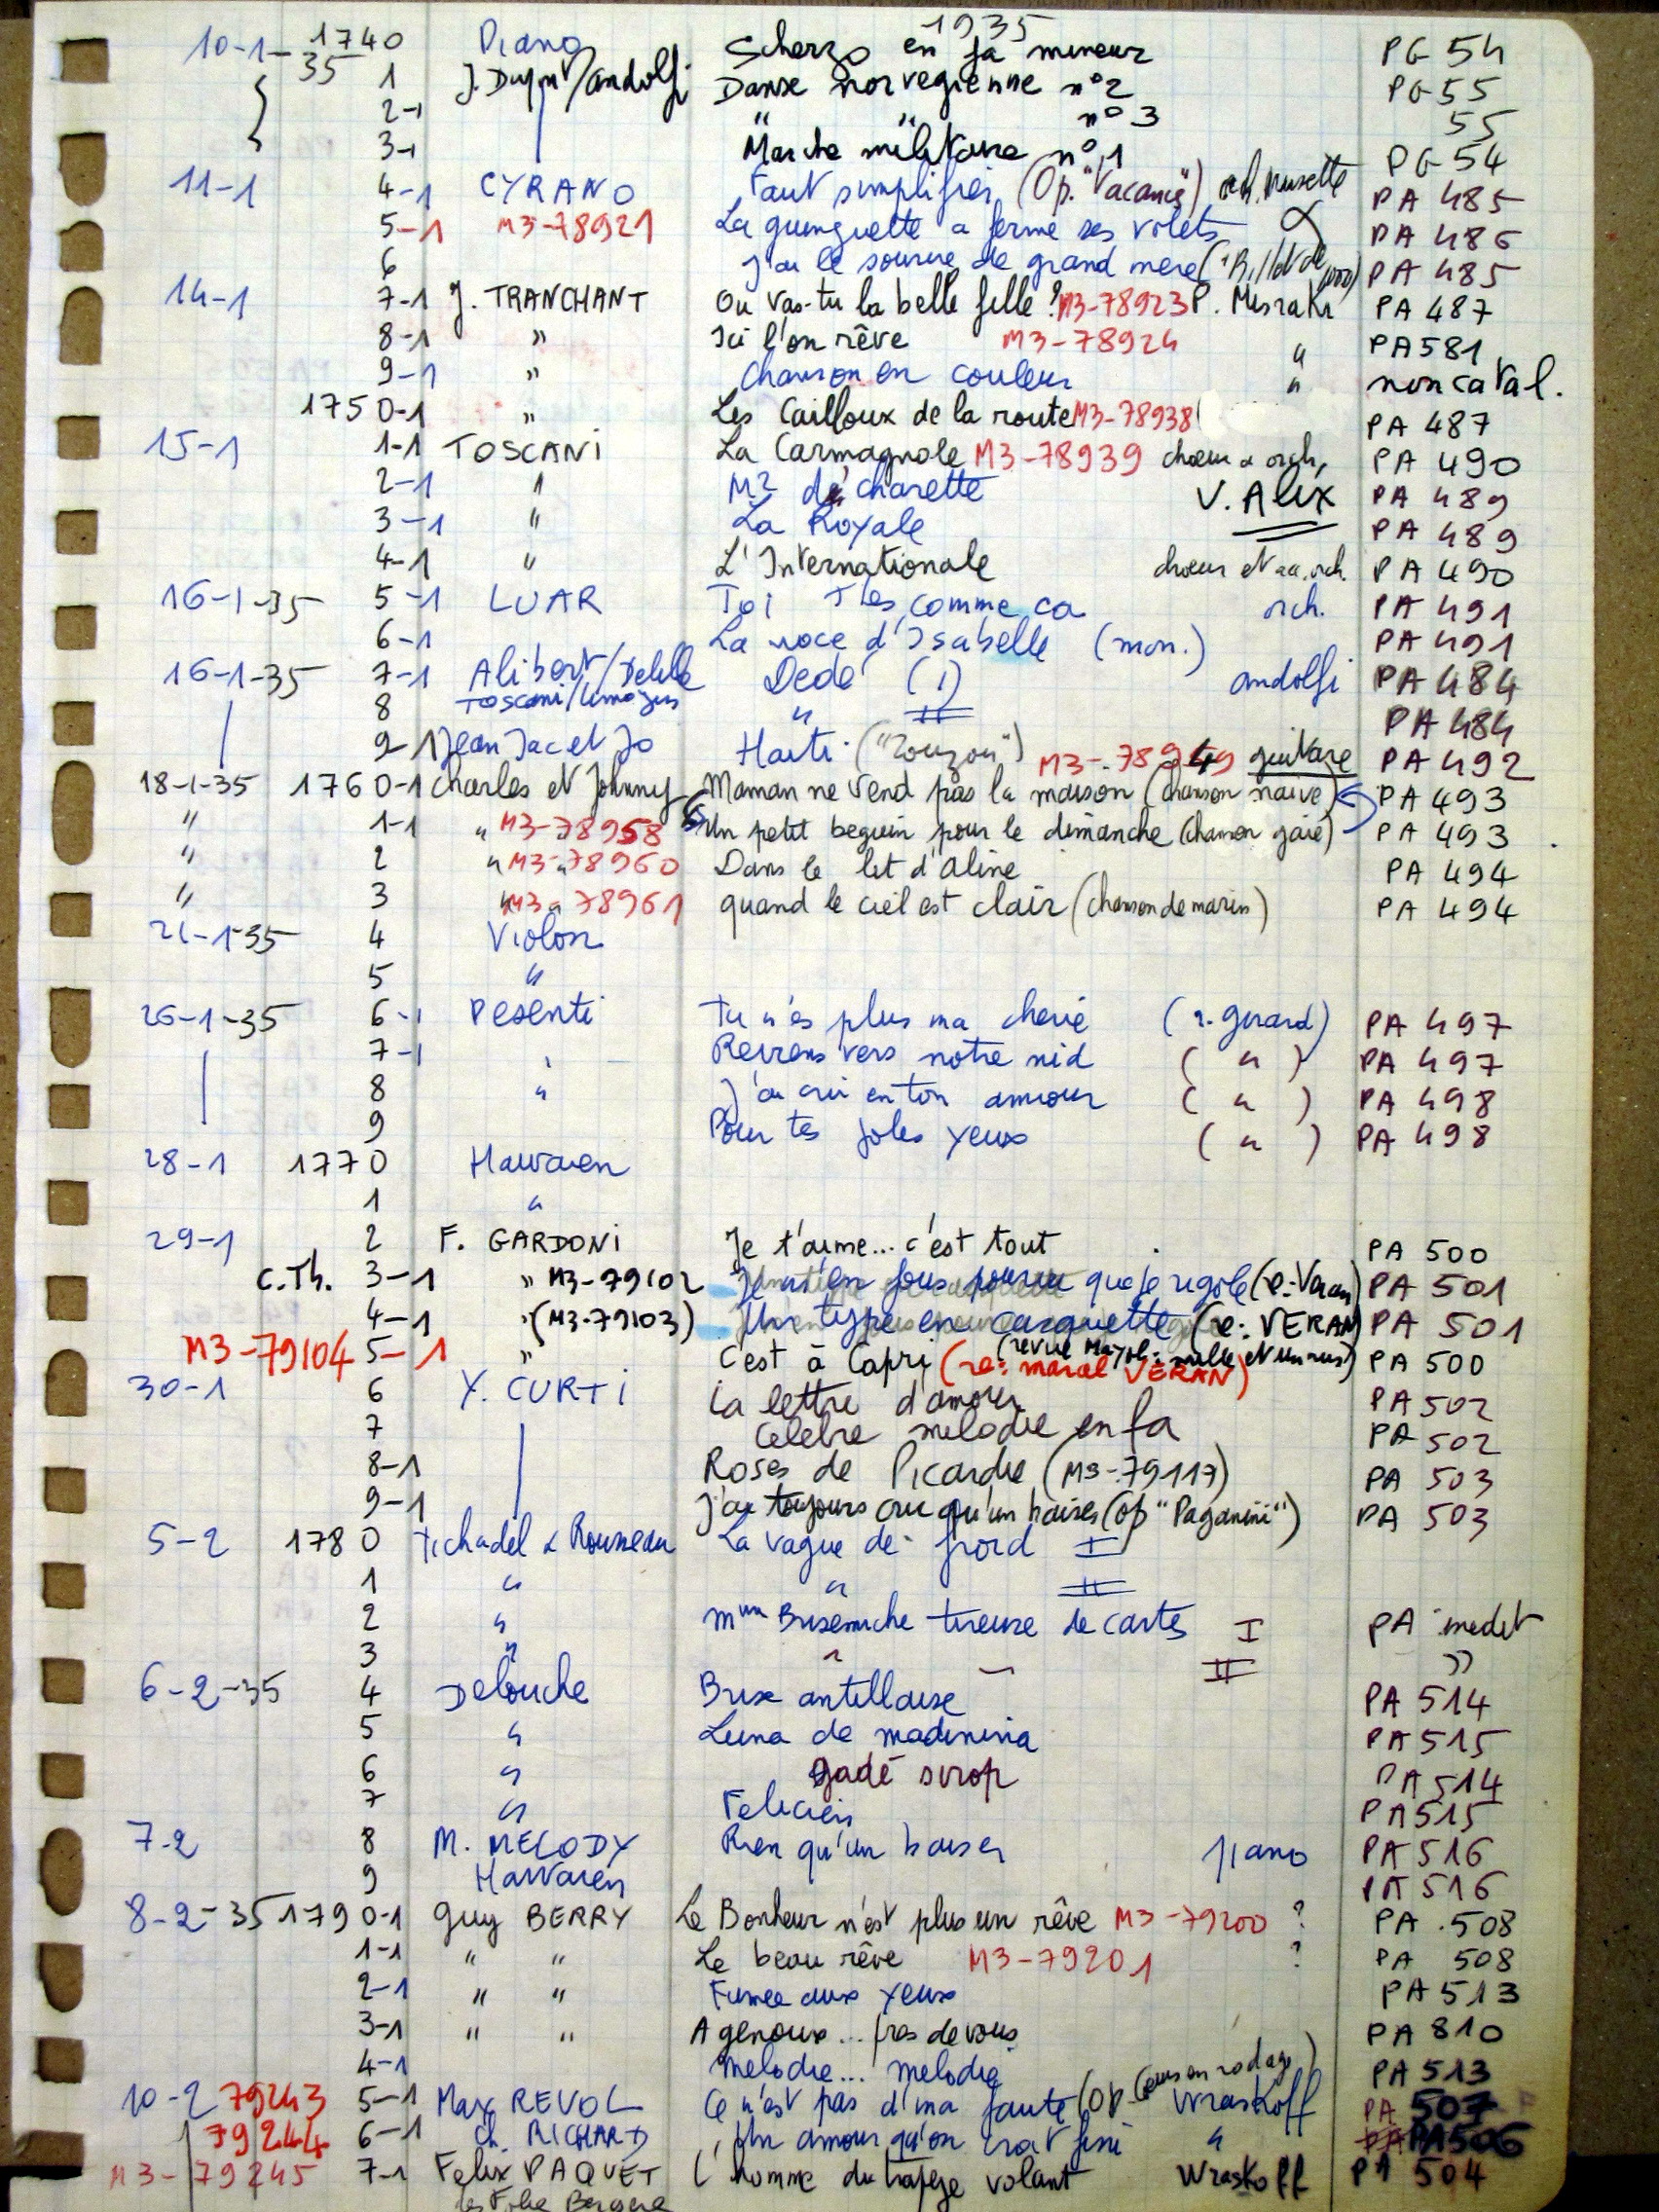 1935
10-1-35 1740 Piano Scherzo en fa mineur PG 54
1 J. Dupont/andolfi Danse norvegienne n°2 PG 55
2-1 " " n°3 55
3-1 Marche militaire n°1 PG 54
11-1 4-1 CYRANO Faut simplifier (Op. "Vacances") orch. musette PA 485
5-1 M3-78921 La guinguette a fermé ses volets PA 486
6 J'ai le sourire de grand mere ("Billet de 1000) PA 485
14-1 7-1 J. TRANCHANT Ou vas-tu la belle fille? M3-78923 P. Misraki PA 487
8-1 " Ici l'on rêve M3-78924 " PA 581
9-1 " Chanson en couleur " non catal.
1750-1 " Les Cailloux de la route M3-78938 PA 487
15-1 1-1 TOSCANI La Carmagnole M3-78939 choeur & orch, PA 490
2-1 " Mr de charette V. Alix PA 489
3-1 " La Royale PA 489
4-1 " L'Internationale choeur et acc. orch. PA 490
16-1-35 5-1 LUAR Toi t'es comme ca orch. PA 491
6-1 La noce d'Isabelle (mon.) PA 491
16-1-35 7-1 Alibert/Delille Dede (I) andolfi PA 484
8 Toscani/Limozin " II PA 484
9-1 Jean Jac et Jo Haiti ("Zouzou") M3-78949 guitare PA 492
18-1-35 1760-1 Charles et Johnny Maman ne vend pas la maison (chanson naive) PA 493
" 1-1 " M3-78958 Un petit beguin pour le dimanche (chanson gaie) PA 493
" 2 " M3-78960 Dans le lit d'aline PA 494
" 3 " M3-78961 quand le ciel est clair (chanson de marins) PA 494
21-1-35 4 Violon
5 "
26-1-35 6-1 Pesenti Tu n'es plus ma cherie (r. gerard) PA 497
7-1 " Reviens vers notre nid ( " ) PA 497
8 " J'ai cru en ton amour ( " ) PA 498
9 Pour tes jolis yeux ( " ) PA 498
28-1 1770 Hawaien
1 "
29-1 2 F. GARDONI Je t'aime... c'est tout PA 500
C.Th. 3-1 " M3-79102 Je m'en fous pourvu que je rigole (r: Veran) PA 501
4-1 " (M3-79103) Un type en casquette (r: VERAN) PA 501
M3-79104 5-1 " C'est à Capri (revue Mayol: mille et un nus) (r: marcel VERAN) PA 500
30-1 6 Y. CURTI La lettre d'amour PA 502
7 Celebre melodie en fa PA 502
8-1 Roses de Picardie (M3-79117) PA 503
9-1 J'ai toujours cru qu'un baiser (op "Paganini") PA 503
5-2 1780 Tichadel & Rousseau La vague de froid I
1 " " II
2 " Mme Brisemiche tireuse de cartes I PA inedit
3 " " II "
6-2-35 4 Delouche Brise antillaise PA 514
5 " Luna de madinina PA 515
6 " gadé sirop PA 514
7 " Felicien PA 515
7-2 8 M. MELODY Rien qu'un baiser piano PA 516
9 Hawaien PA 516
8-2-35 1790-1 Guy BERRY Le Bonheur n'est plus un rêve M3-79200 ? PA 508
1-1 " " Le beau rêve M3-79201 ? PA 508
2-1 " " Fumee aux yeux PA 513
3-1 " " A genoux... pres de vous PA 810
4-1 melodie... melodie PA 513
10-2 79243 5-1 Max REVOL Ce n'est pas d'ma faute (op. Coeurs en rodage) Wraskoff PA 507
79244 6-1 Ch. RICHARD Un amour qu'on croit fini " PA 506
M3-79245 7-1 Felix PAQUET L'homme du trapeze volant Wraskoff PA 504
des Folies Bergere